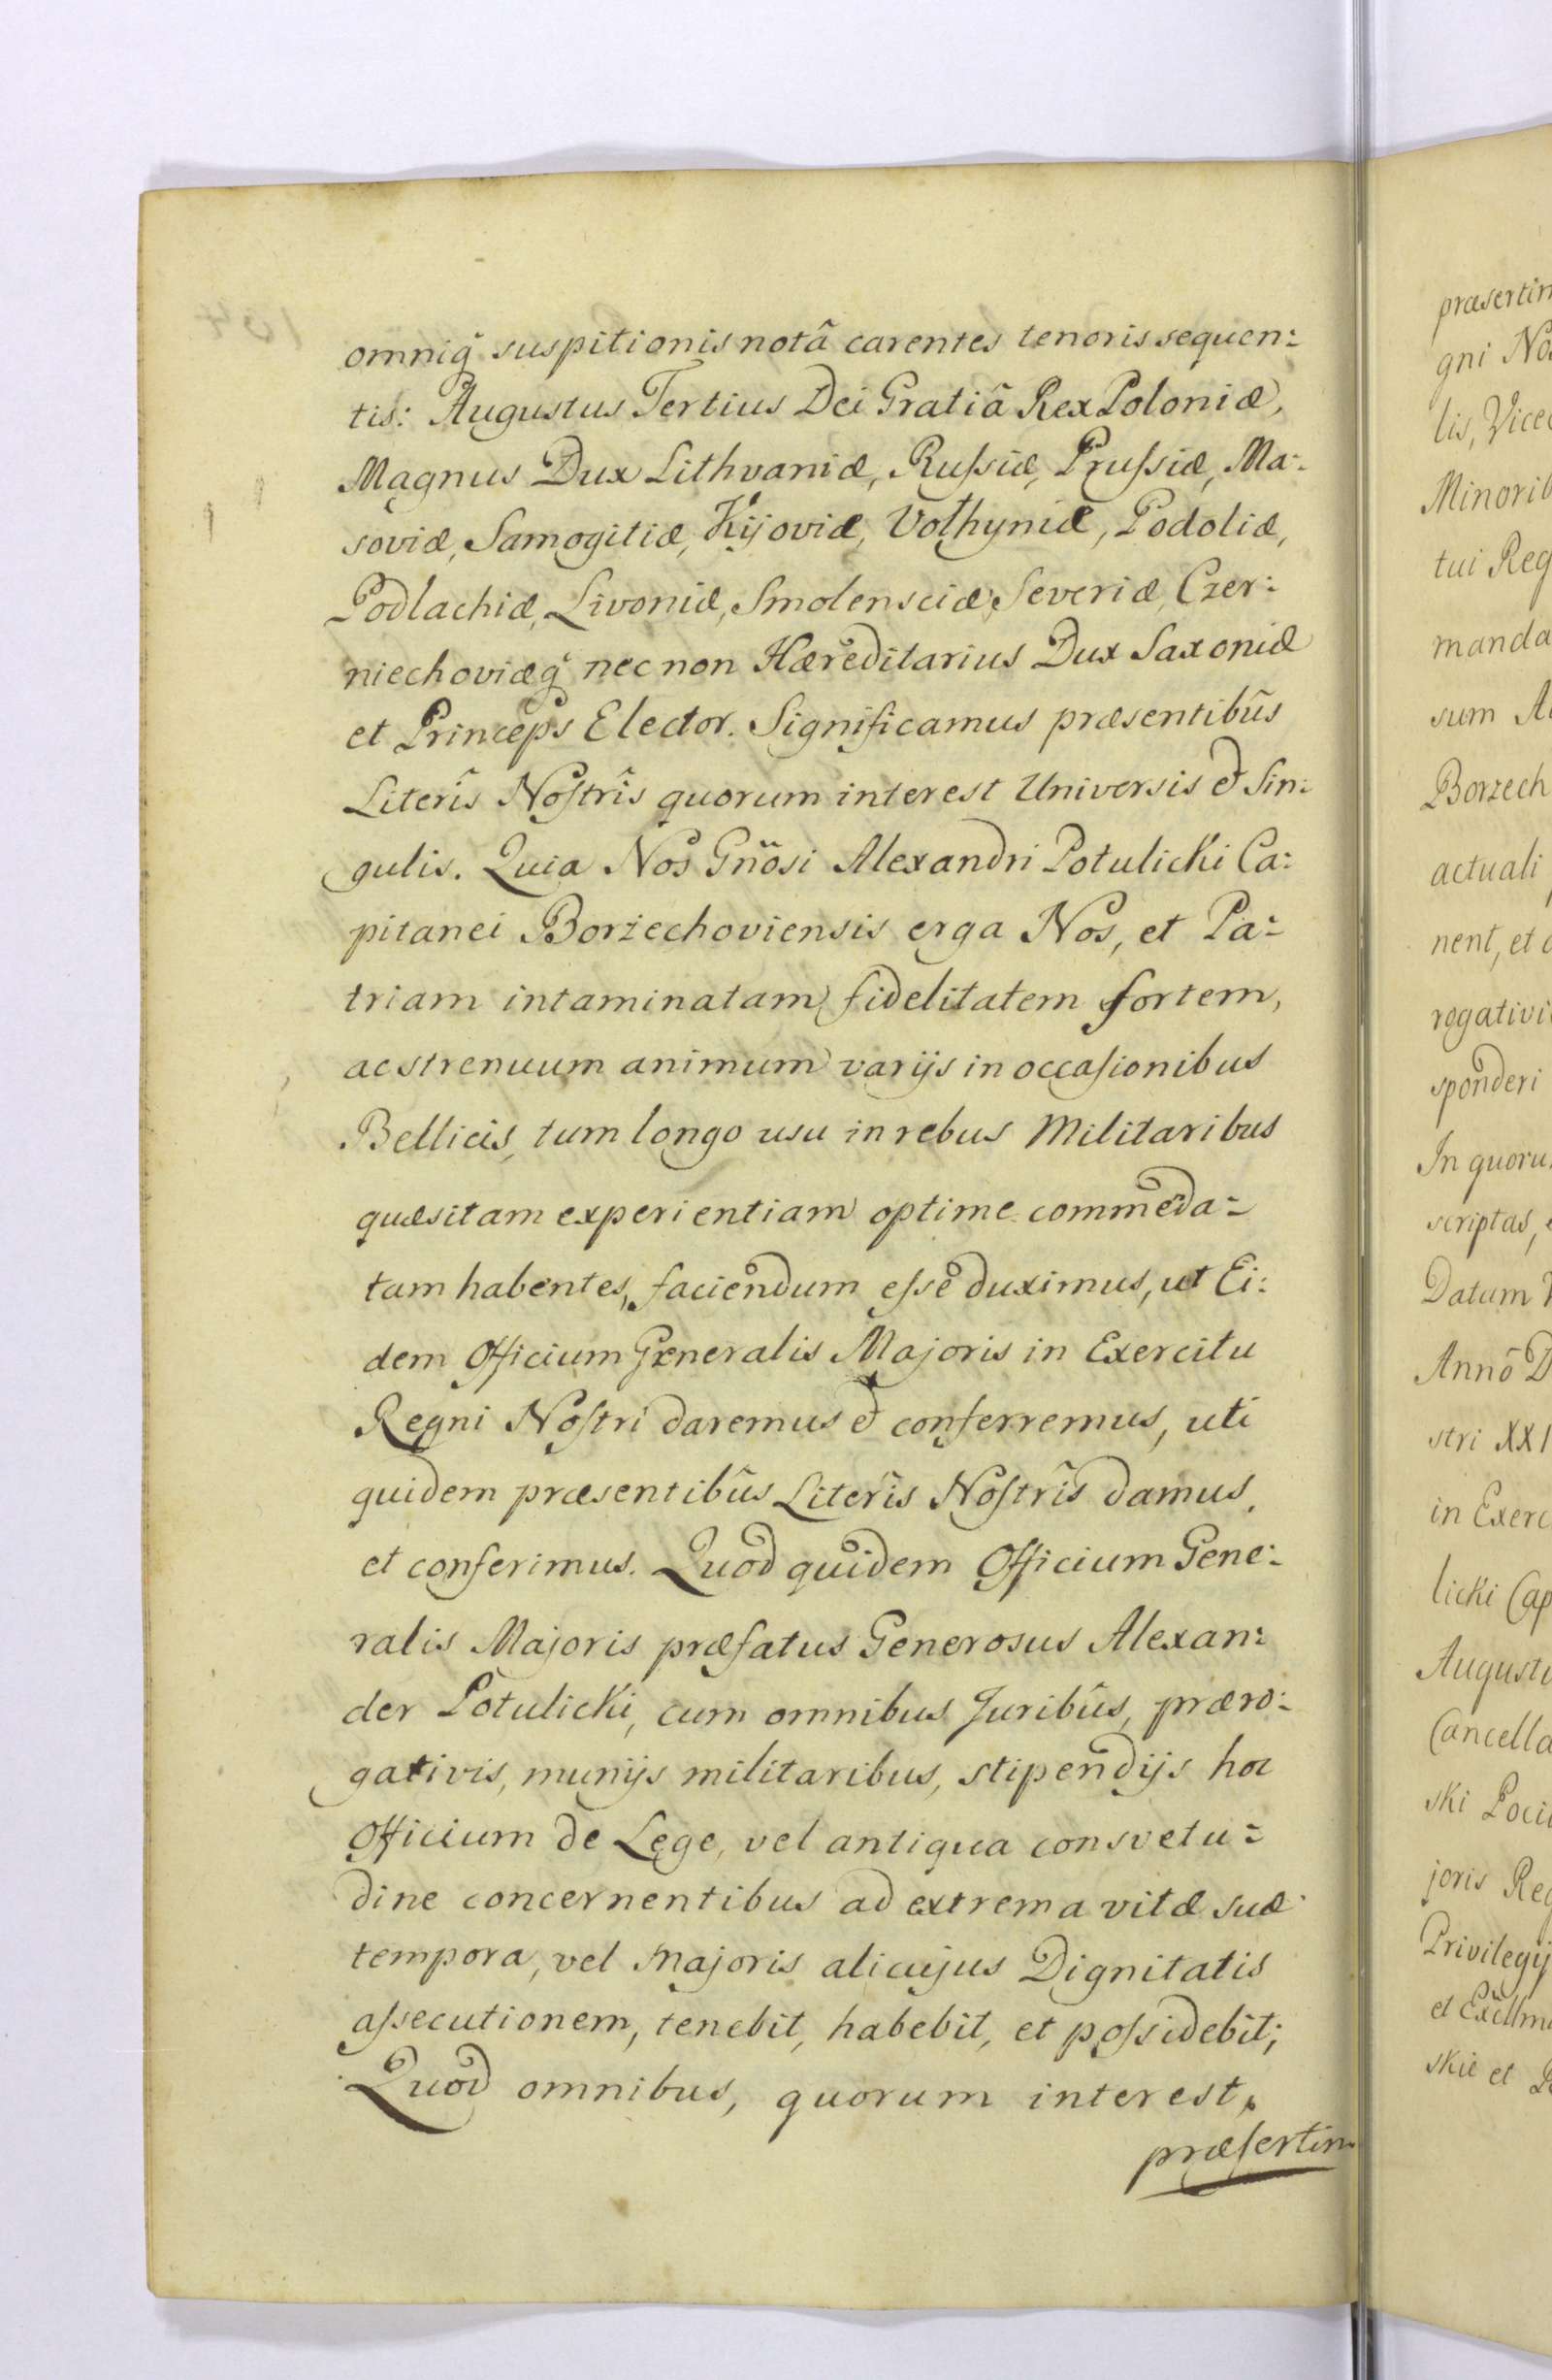 omniq̃ suspitionis notâ carentes tenoris sequen:
tis: Augustus Tertius Dei Gratiâ Rex Poloniæ,
Magnus Dux Lithvaniæ, Ruſsiæ, Pruſsiæ, Ma:
soviæ, Samogitiæ, Kijoviæ, Volhyniæ, Podoliæ,
Podlachiæ, Livoniæ, Smolensciæ, Severiæ, Czer:
niechoviæq̃ nec non Hæreditarius Dux Saxoniæ
et Princeps Elector. Significamus præsentibûs
Literîs Noſtrîs quorum interest Universis & Sin:
gulis. Quia Nos Gñosi Alexandri Potulicki Ca:
pitanei Borżechoviensis erga Nos, et Pa:
triam intaminatam fidelitatem fortem,
ac strenuum animum varijs in occaſionibus
Bellicis, tum longo usu in rebus Militaribus
quæsitam experientiam optime commēda:
tam habentes, faciendum eſse duximus, ut Ei:
dem Officium Generalis Majoris in Exercitu
Regni Noſtri daremus & conferremus, uti
quidem præsentibûs Literîs Noſtrîs damus,
et conferimus. Quod quidem Officium Gene:
ralis Majoris præfatus Generosus Alexan:
der Potulicki, cum omnibus Juribûs, præro:
gativis, munijs militaribus, stipendijs hoc
Officium de Lege, vel antiqua consvetu:
dine concernentibus ad extrema vitæ suæ
tempora, vel Majoris alicujus Dignitatis
aſsecutionem, tenebit, habebit, et poſsidebit;
Quod omnibus, quorum interest,
præſertim
præsertim
gni No
lis, Vice
Minorib
tui Reg
manda
sum A
Borzech
actuali
nent, et
rogativi
sponderi
In quoru
scriptas,
Datum
Annô D
stri XXI
in Exerc
licki Cap
Augusti
Cancella
ski Poci
joris Reg
Privilegij
et Excellm
skie et